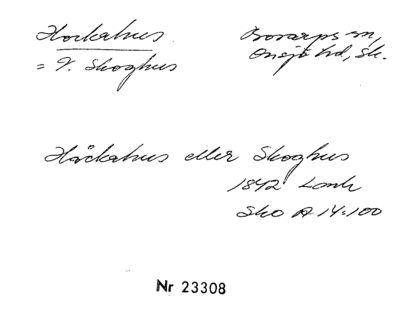 Hockahus
= V. Skoghus
Bosarps sn,
Onsjö hd, Sk.
Håckahus eller Skoghus
1842 Lantm
Sko A 14:100
Nr 23308